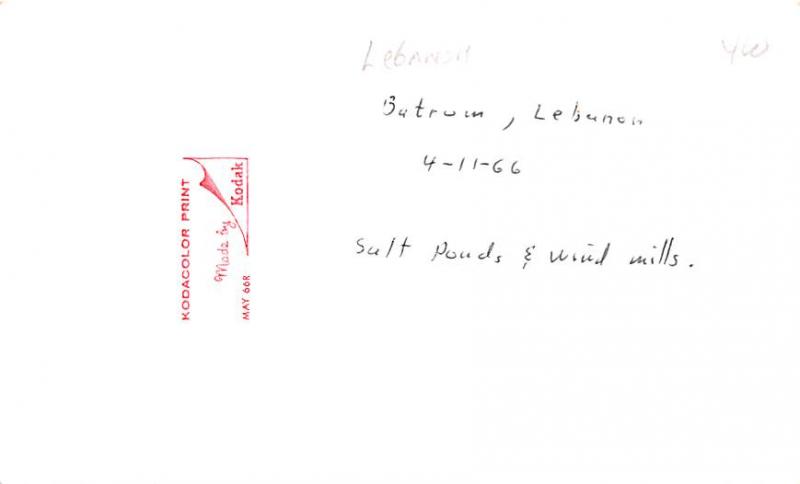 Lebanon
Batrum, Lebanon
4-11-66
Salt Ponds & Wind mills.
KODACOLOR PRINT
Made by
Kodak
MAY 66R